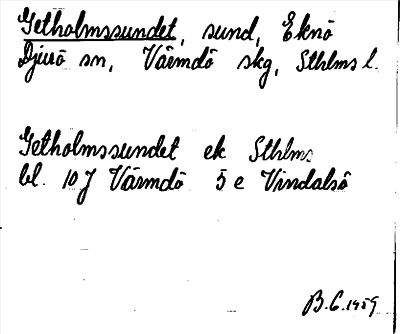 Getholmssundet, sund, Eknö
Djurö sn, Värmdö skg, Sthlms l.
Getholmssundet ek Sthlms
bl. 10J Värmdö 5 e Vindalsö
B.C. 1959